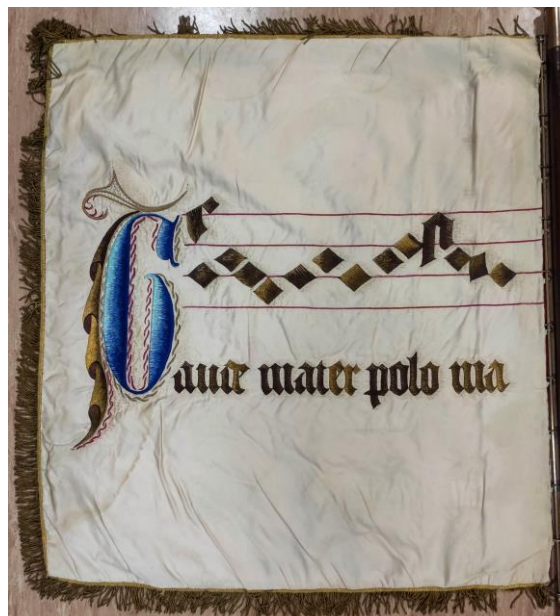 Gaude mater polo nia